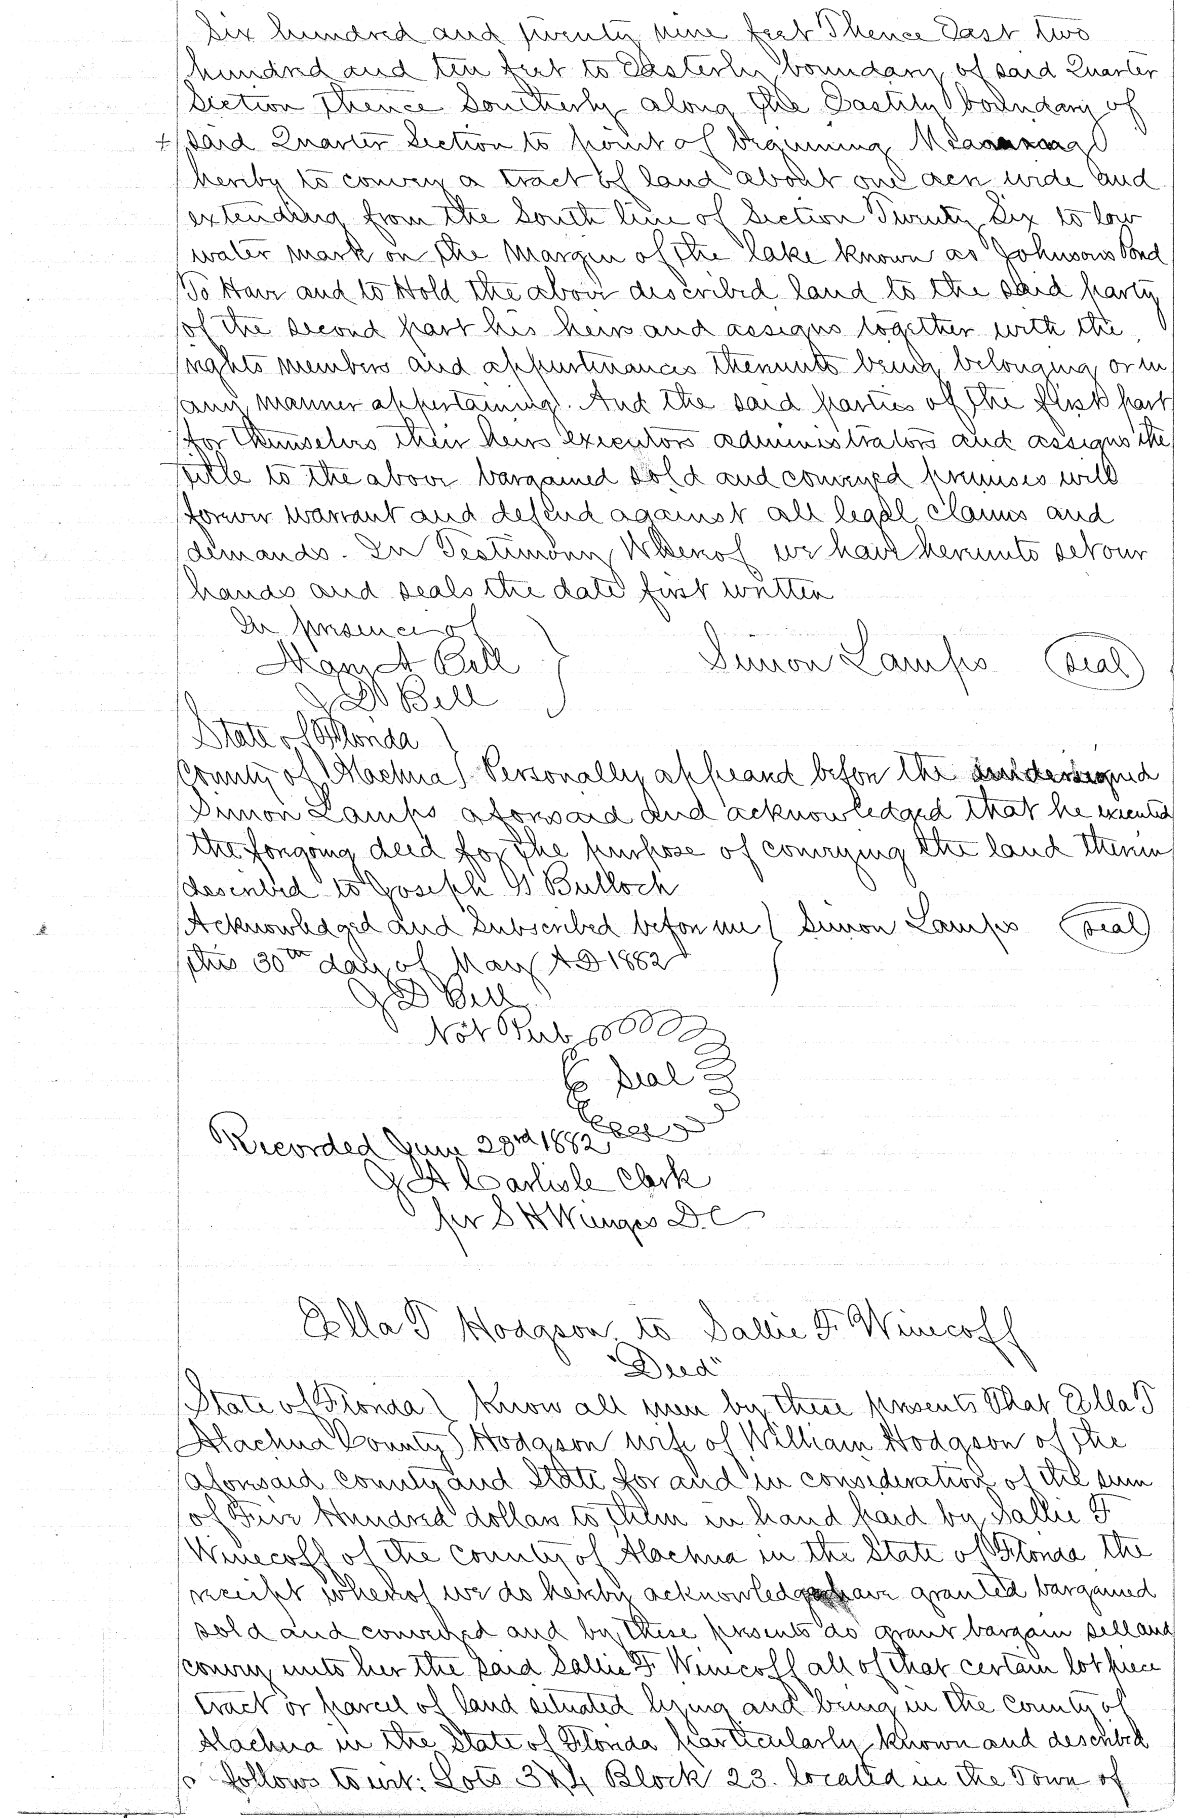 Six hundred and twenty nine feet Thence East two
hundred and ten feet to Easterly boundary of said Quarter
Section Thence Southerly along the Eastily boundary of
+ said Quarter Section to point of beginning Meaning
hereby to convey a tract of land about one acre wide and
extending from the South line of Section Twenty Six to low
water mark on the margin of the lake known as Johnsons Pond
To Have and to Hold the above described land to the said party
of the second part his heirs and assigns together with the
rights members and appurtenances thereunto being belonging or in
any manner appertaining. And the said parties of the first part
for themselves their heirs executors administrators and assigns the
title to the above bargained sold and conveyed premises will
forever warrant and defend against all legal claims and
demands. In Testimony Whereof we have hereunto set our
hands and seals the date first written
In presence of
Bell } Simon Lamps (seal)
J D Bell
State of Florida )
County of Alachua ) Personally appeard before the undersigned
Simon Lamps aforesaid and acknowledged that he executed
the foregoing deed for the purpose of conveying the land therein
described to Joseph G Bulloch
Acknowledged and Subscribed before me { Simon Lamps (seal)
this 30th day of May AD 1882
J D Bell
Not Pub
Seal
Recorded June 23rd 1882
J A Carlisle Clerk
per S H Wienges D.C
Ella T Hodgson to Sallie F. Winecoff
"Deed"
State of Florida ( Know all men by these presents That Ella T
Alachua County ) Hodgson wife of William Hodgson of the
aforesaid county and State for and in consideration of the sum
of Five Hundred dollars to them in hand paid by Sallie F
Winecoff of the county of Alachua in the State of Florida the
receipt whereof we do hereby acknowledge have granted bargained
sold and conveyed and by these presents do grant bargain sell and
convey unto her the said Sallie F Winecoff all of that certain lot piece
tract or parcel of land situated lying and being in the county of
Alachua in the State of Florida particularly known and described
as follows to wit: Lots 3 & 4 Block 23. located in the Town of